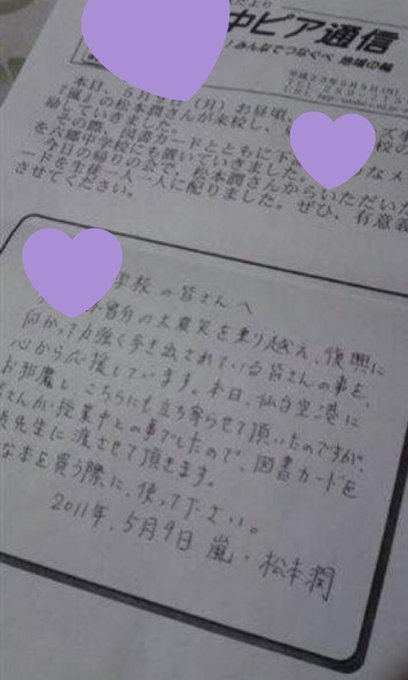 中ピア通信
！みんなでつなぐべ 地域の輪
平成23年5月9日(月)
本日、5月9日（月）お昼頃、
『嵐』の松本潤さんが来校し、
励していきました。
その際、図書カードとともに下
を六郷中学校にも置いていきました。松本潤さんからいただいた
今日の帰りの会で、
ードを生徒一人一人に配りました。ぜひ、有意義
させてください。
学校の皆さんへ
曽有の大震災を乗り越え、復興に
向かって力強く歩き出されている皆さんの事を、
心から応援しています。本日、仙台空港に
お邪魔し、こちらにも立ち寄らせて頂いたのですが、
さんが授業中との事でしたので、図書カードを
先生に渡させて頂きます。
な本を買う際に、使って下さい。
2011年、5月9日 嵐・松本潤